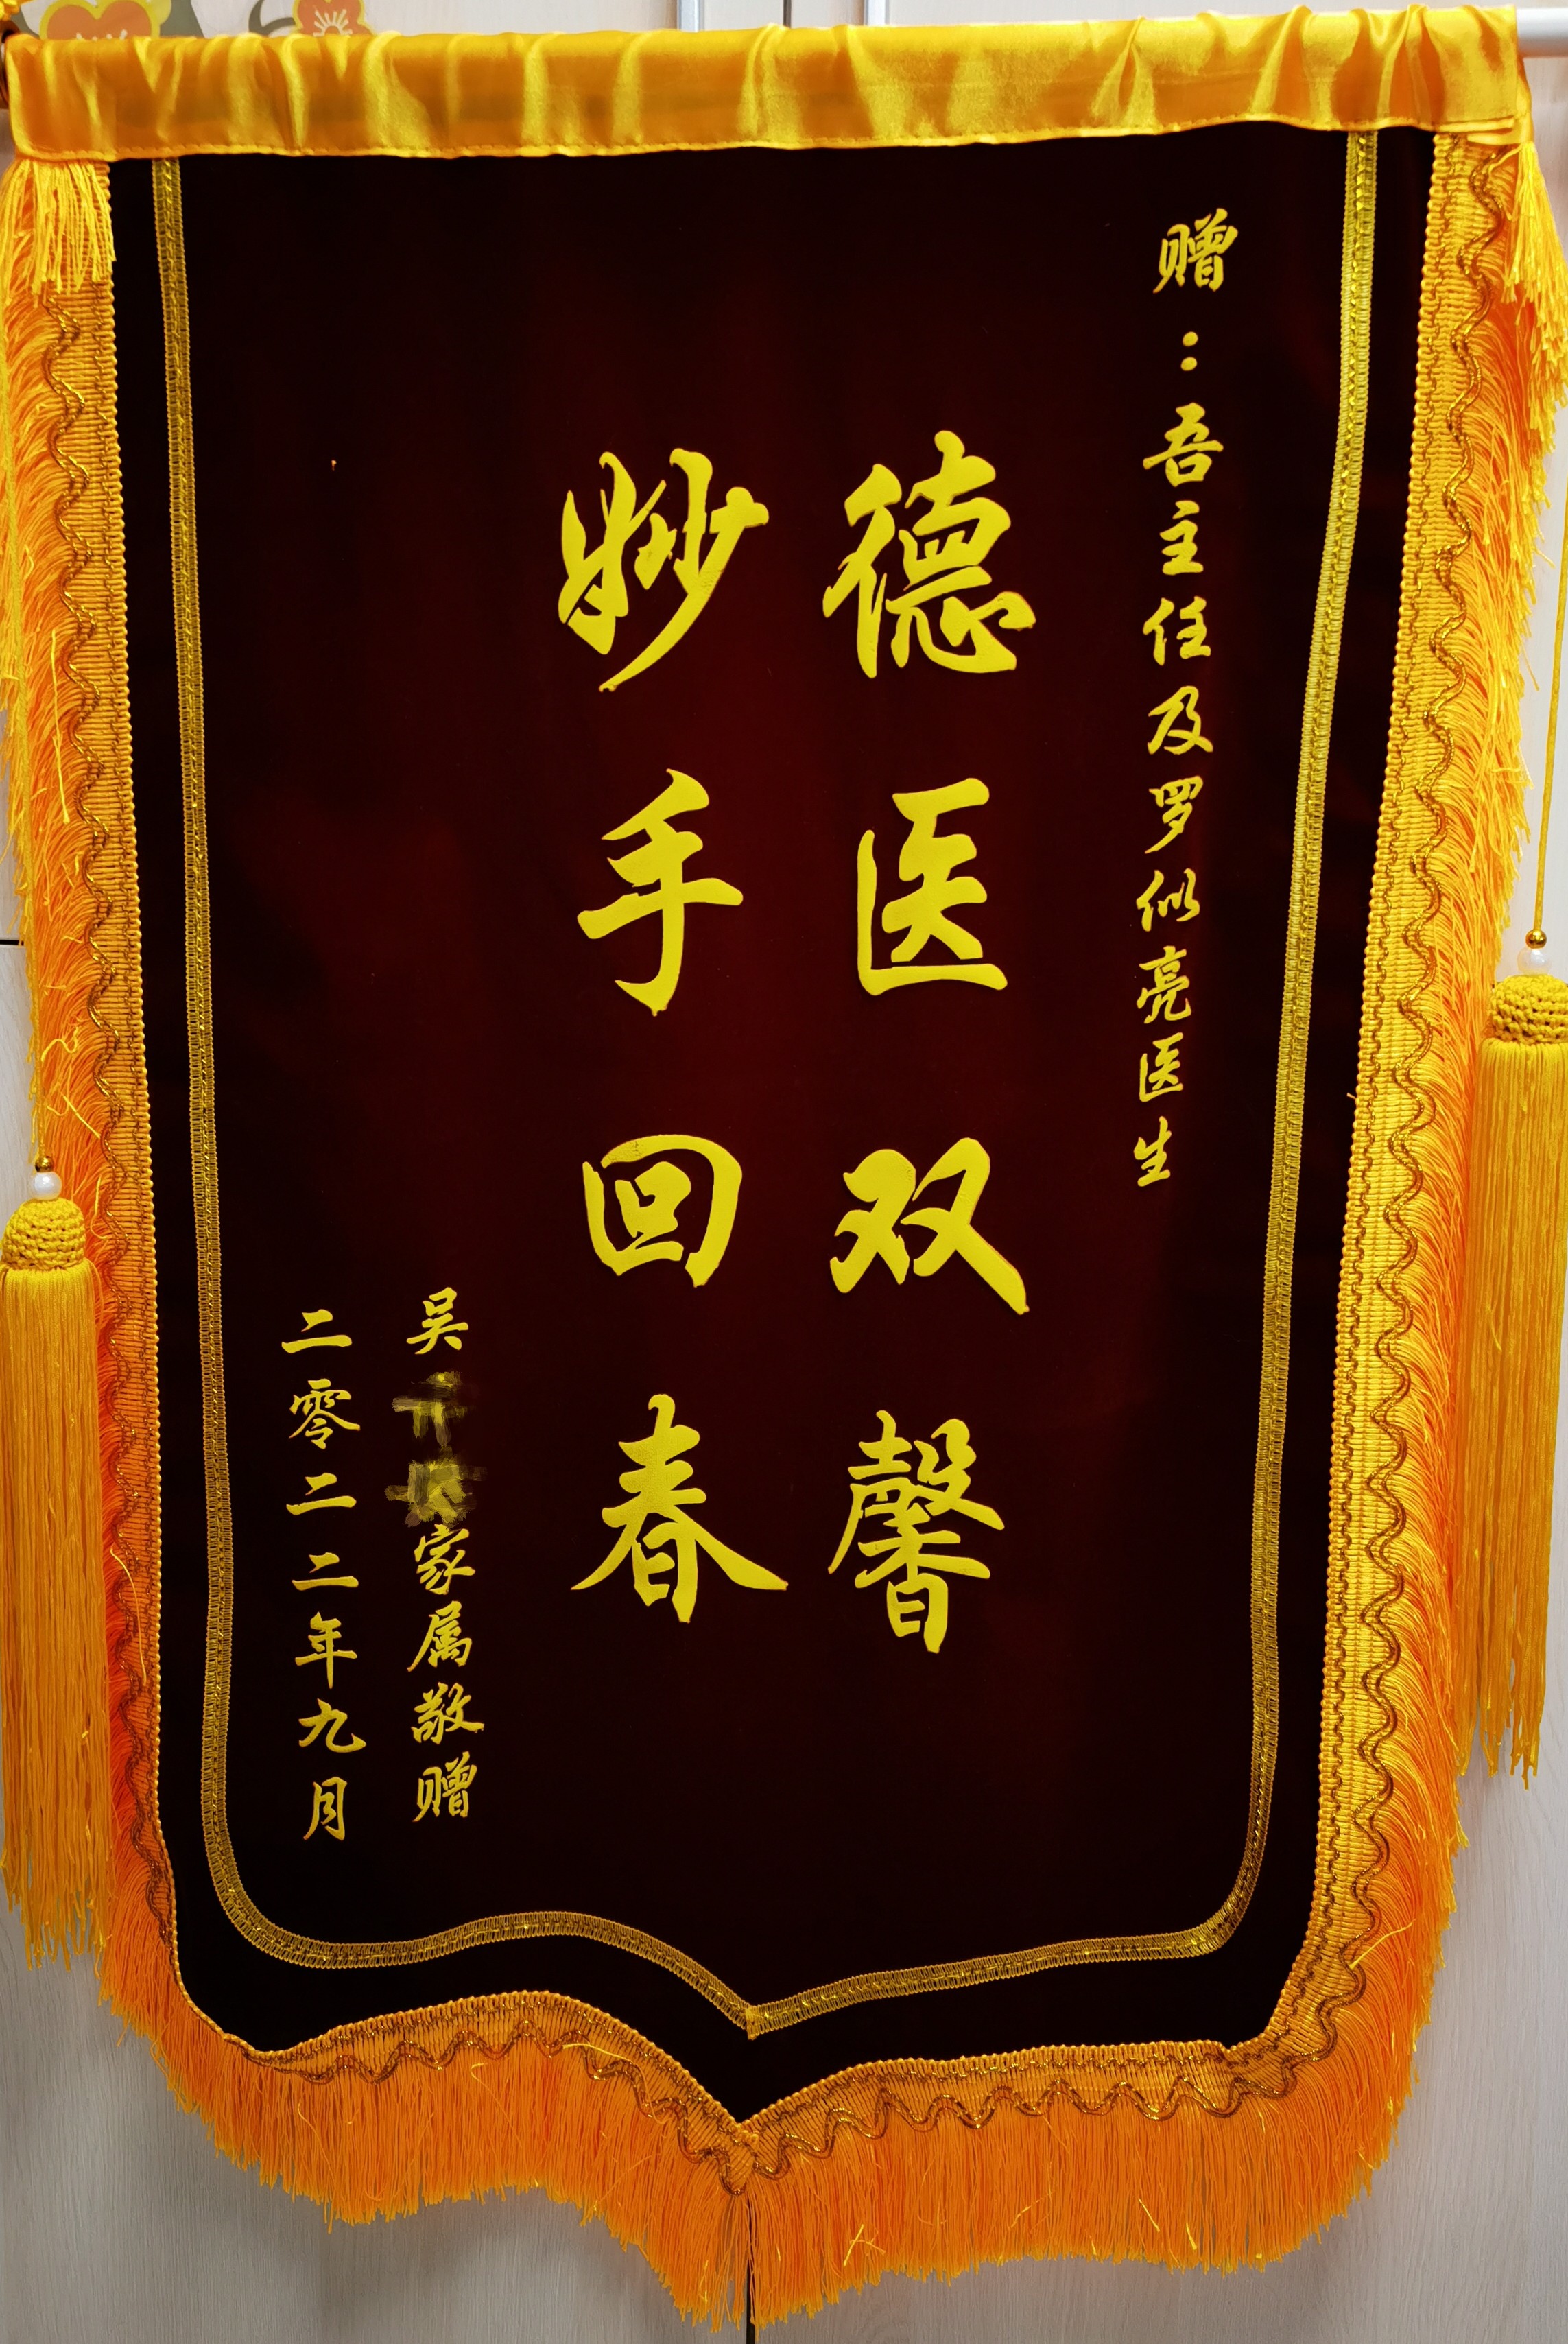 赠：吾主任及罗似亮医生
德医双馨
妙手回春
吴家属敬赠
二零二二年九月